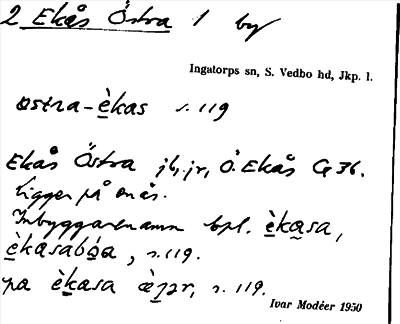 2 Ekås Östra 1 by
Ingatorps sn, S. Vedbo hd, Jkp. l.
östra-èkas s. 119
Ekås Östra jb, jr, Ö. Ekås G 36.
Ligger på en ås.
Inbyggarenamn bpl. èkasa,
èkasaboa, s. 119.
pa èkasa s. 119.
Ivar Modéer 1950